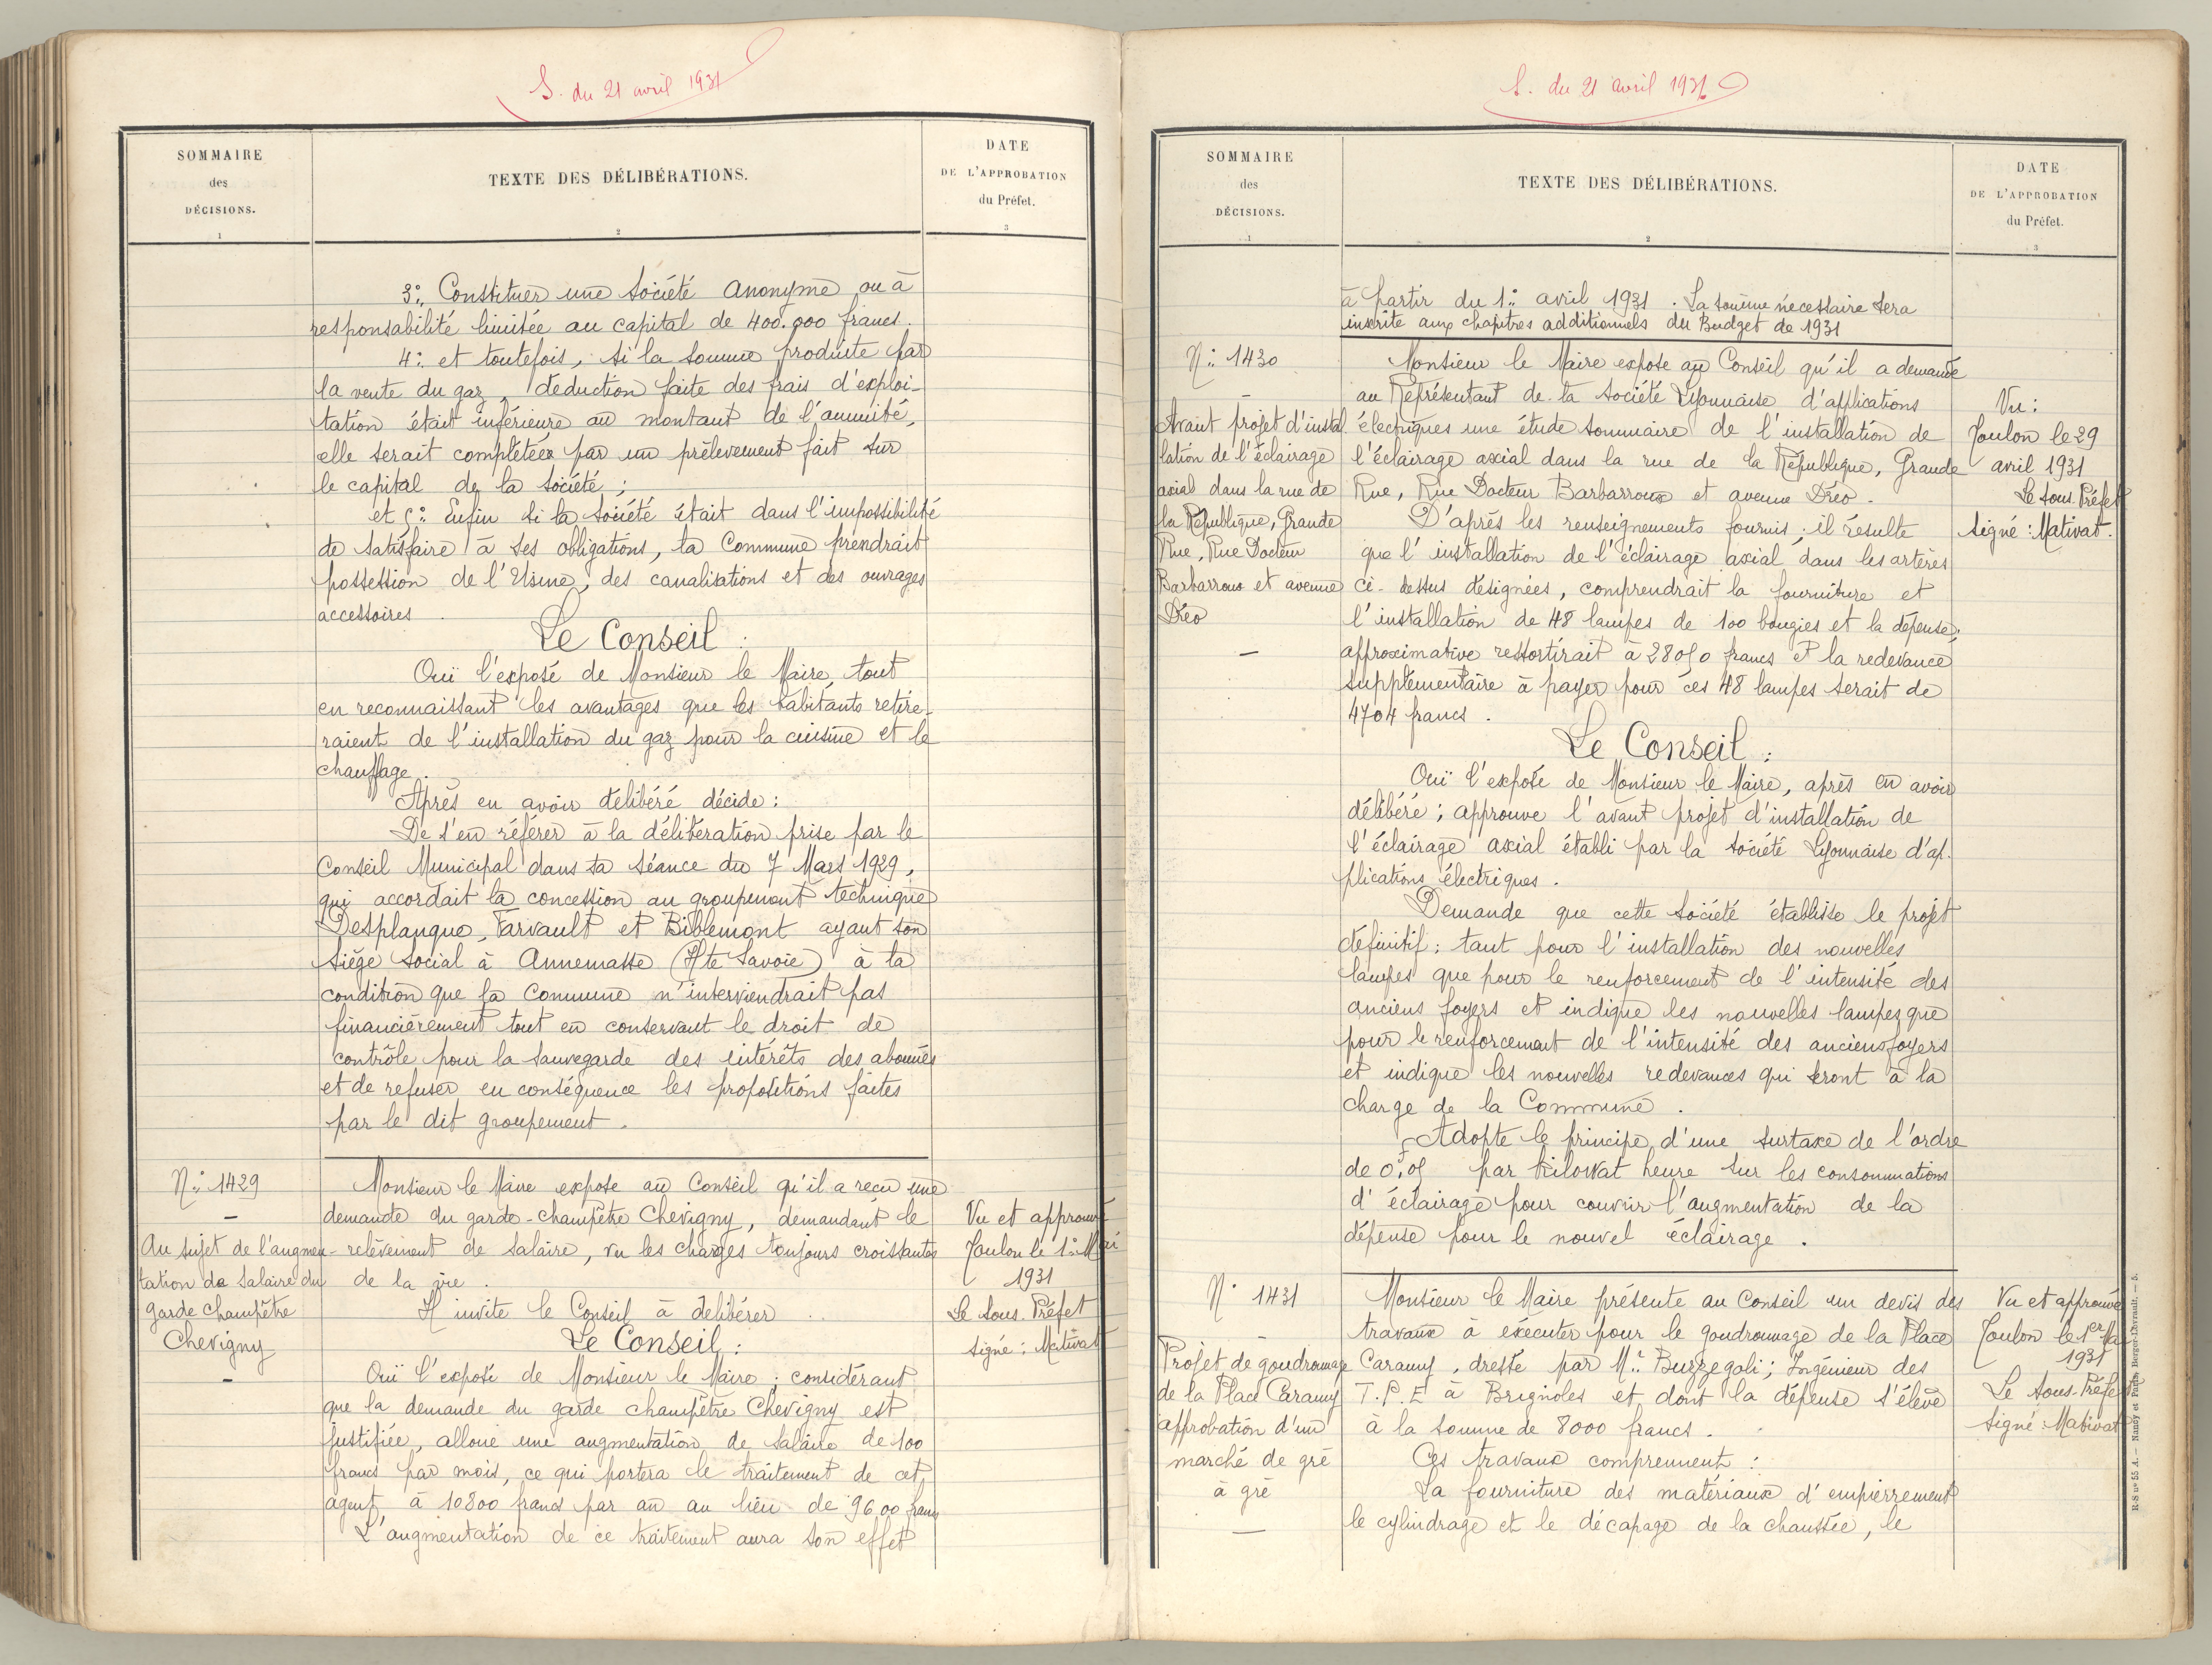 S. du 21 avril 1931
SOMMAIRE
des
DÉCISIONS.
1
TEXTE DES DÉLIBÉRATIONS.
2
DATE
DE L'APPROBATION
du Préfet.
3
3º. Constituer une Société Anonyme ou à
responsabilité limitée au capital de 400.000 francs.
4º. et toutefois, si la somme produite par
la vente du gaz, déduction faite des frais d'exploi-
tation était inférieure au montant de l'annuité,
elle serait complétée par un prélèvement fait sur
le capital de la Société ;
et 5º. Enfin si la Société était dans l'impossibilité
de satisfaire à ses obligations, la Commune prendrait
possession de l'Usine, des canalisations et des ouvrages
accessoires.
Le Conseil :
Ouï l'exposé de Monsieur le Maire, tout
en reconnaissant les avantages que les habitants retire-
raient de l'installation du gaz pour la cuisine et le
chauffage.
Après en avoir délibéré décide :
De s'en référer à la délibération prise par le
Conseil Municipal dans sa séance du 7 Mars 1929,
qui accordait la concession au groupement technique
Desplanque, Farvault et Biblemont ayant son
siège social à Annemasse (Hte Savoie) à la
condition que la Commune n'interviendrait pas
financièrement tout en conservant le droit de
contrôle pour la sauvegarde des intérêts des abonnés
et de refuser en conséquence les propositions faites
par le dit groupement.
Nº 1429
—
Au sujet de l'augmen-
tation de salaire du
garde champêtre
Chevigny
-
Monsieur le Maire expose au Conseil qu'il a reçu une
demande du garde-champêtre Chevigny, demandant le
relèvement de salaire, vu les charges toujours croissantes
de la vie.
Il invite le Conseil à délibérer
Le Conseil :
Ouï l'exposé de Monsieur le Maire ; considérant
que la demande du garde champêtre Chevigny est
justifiée, alloue une augmentation de salaire de 100
francs par mois, ce qui portera le traitement de cet
agent à 10800 francs par an au lieu de 9600 francs
L'augmentation de ce traitement aura son effet
Vu et approuvé
Toulon le 1º Mai
1931
Le Sous. Préfet
signé : Mativat
S. du 21 avril 1931
SOMMAIRE
des
DÉCISIONS.
1
TEXTE DES DÉLIBÉRATIONS.
2
DATE
DE L'APPROBATION
du Préfet.
3
à partir du 1º. avril 1931. La somme nécessaire sera
inscrite aux chapitres additionnels du Budget de 1931
Nº 1430
—
Avant projet d'instal.
lation de l'éclairage
axial dans la rue de
la République, Grande
Rue, Rue Docteur
Barbarroux et avenue
Dréo
—
Monsieur le Maire expose au Conseil qu'il a demandé
au Représentant de la Société Lyonnaise d'applications
électriques une étude sommaire de l'installation de
l'éclairage axial dans la rue de la République, Grande
Rue, Rue Docteur Barbarroux et avenue Dréo.
D'après les renseignements fournis ; il résulte
que l'installation de l'éclairage axial dans les artères
ci-dessus désignées, comprendrait la fourniture et
l'installation de 48 lampes de 100 bougies et la dépense
approximative ressortirait à 28050 francs et la redevance
supplémentaire à payer pour ces 48 lampes serait de
4704 francs.
Le Conseil :
Ouï l'exposé de Monsieur le Maire, après en avoir
délibéré ; approuve l'avant projet d'installation de
l'éclairage axial établi par la Société Lyonnaise d'ap.
plications électriques.
Demande que cette Société établisse le projet
définitif : tant pour l'installation des nouvelles
lampes que pour le renforcement de l'intensité des
anciens foyers et indique les nouvelles lampes que
pour le renforcement de l'intensité des anciens foyers
et indique les nouvelles redevances qui seront à la
charge de la Commune.
Adopte le principe d'une surtaxe de l'ordre
de 0f,05 par kilowat heure sur les consommations
d'éclairage pour couvrir l'augmentation de la
dépense pour le nouvel éclairage.
Vu :
Toulon le 29
avril 1931
Le sous. Préfet
signé : Mativat.
Nº 1431
-
Projet de goudronnage
de la Place Caramy
approbation d'un
marché de gré
à gré
—
Monsieur le Maire présente au Conseil un devis des
travaux à exécuter pour le goudronnage de la Place
Caramy, dressé par Mr. Buzzegoli ; Ingénieur des
T.P.E à Brignoles et dont la dépense s'élève
à la somme de 8000 francs.
Ces travaux comprennent :
La fourniture des matériaux d'empierrement
le cylindrage et le décapage de la chaussée, le
Vu et approuvé
Toulon le 1er Mai
1931
Le Sous-Préfet
signé : Mativat
R-S nº 55 A. — Nancy et Paris Berger-Levrault. — 5.